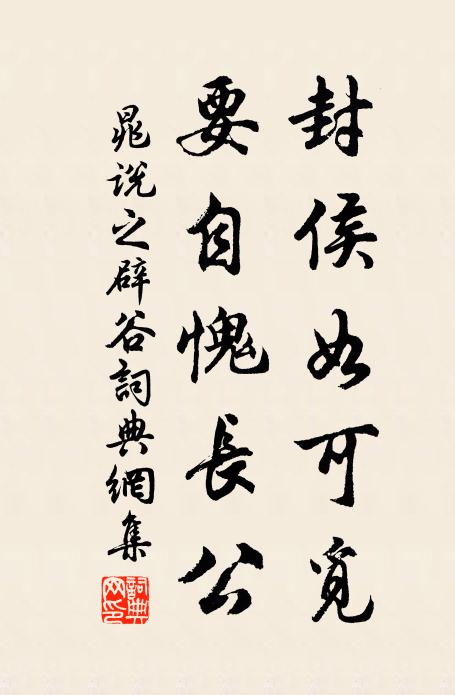 封侯如可覓
要自愧長公
晁說之辟谷詞典網集
詞典网印